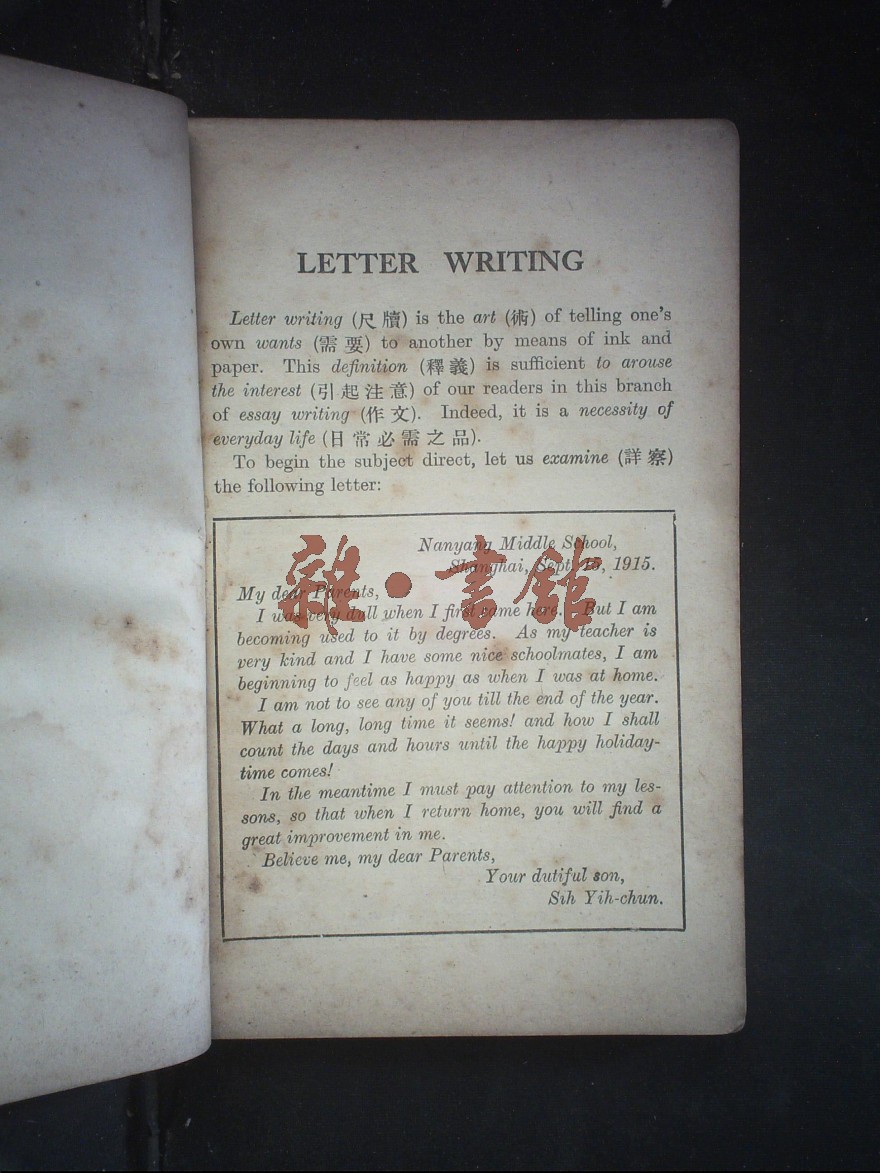 LETTER WRITING
Letter writing (尺牘) is the art (術) of telling one's
own wants (需要) to another by means of ink and
paper. This definition (釋義) is sufficient to arouse
the interest (引起注意) of our readers in this branch
of essay writing (作文). Indeed, it is a necessity of
everyday life (日常必需之品).
To begin the subject direct, let us examine (詳察)
the following letter:
Nanyang Middle School,
Shanghai, Sept. 15, 1915.
My dear Parents,
I was very dull when I first came here. But I am
becoming used to it by degrees. As my teacher is
very kind and I have some nice schoolmates, I am
beginning to feel as happy as when I was at home.
I am not to see any of you till the end of the year.
What a long, long time it seems! and how I shall
count the days and hours until the happy holiday-
time comes!
In the meantime I must pay attention to my les-
sons, so that when I return home, you will find a
great improvement in me.
Believe me, my dear Parents,
Your dutiful son,
Sih Yih-chun.
雜·書館